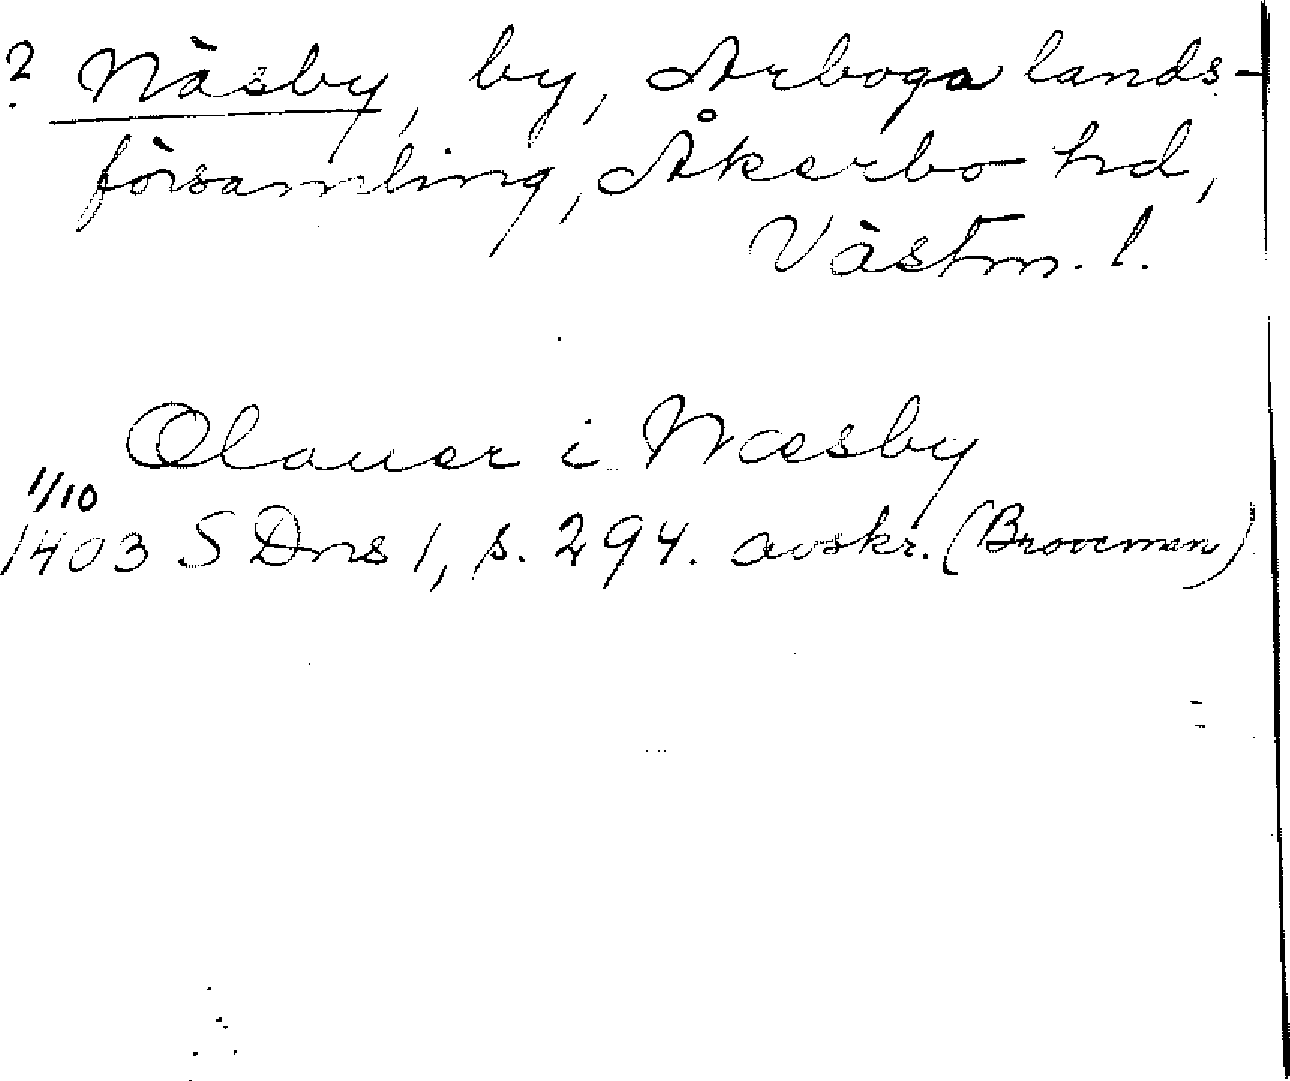 ? Näsby, by, Arboga lands-
församling, Åkerbo hd,
Västm. l.
Olauer i Næsby
1/10
1403 SDns 1, s. 294. avskr. (Brocman)